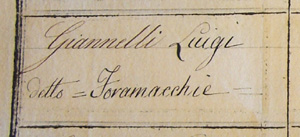 Giannelli Luigi
detto = Foramacchie =